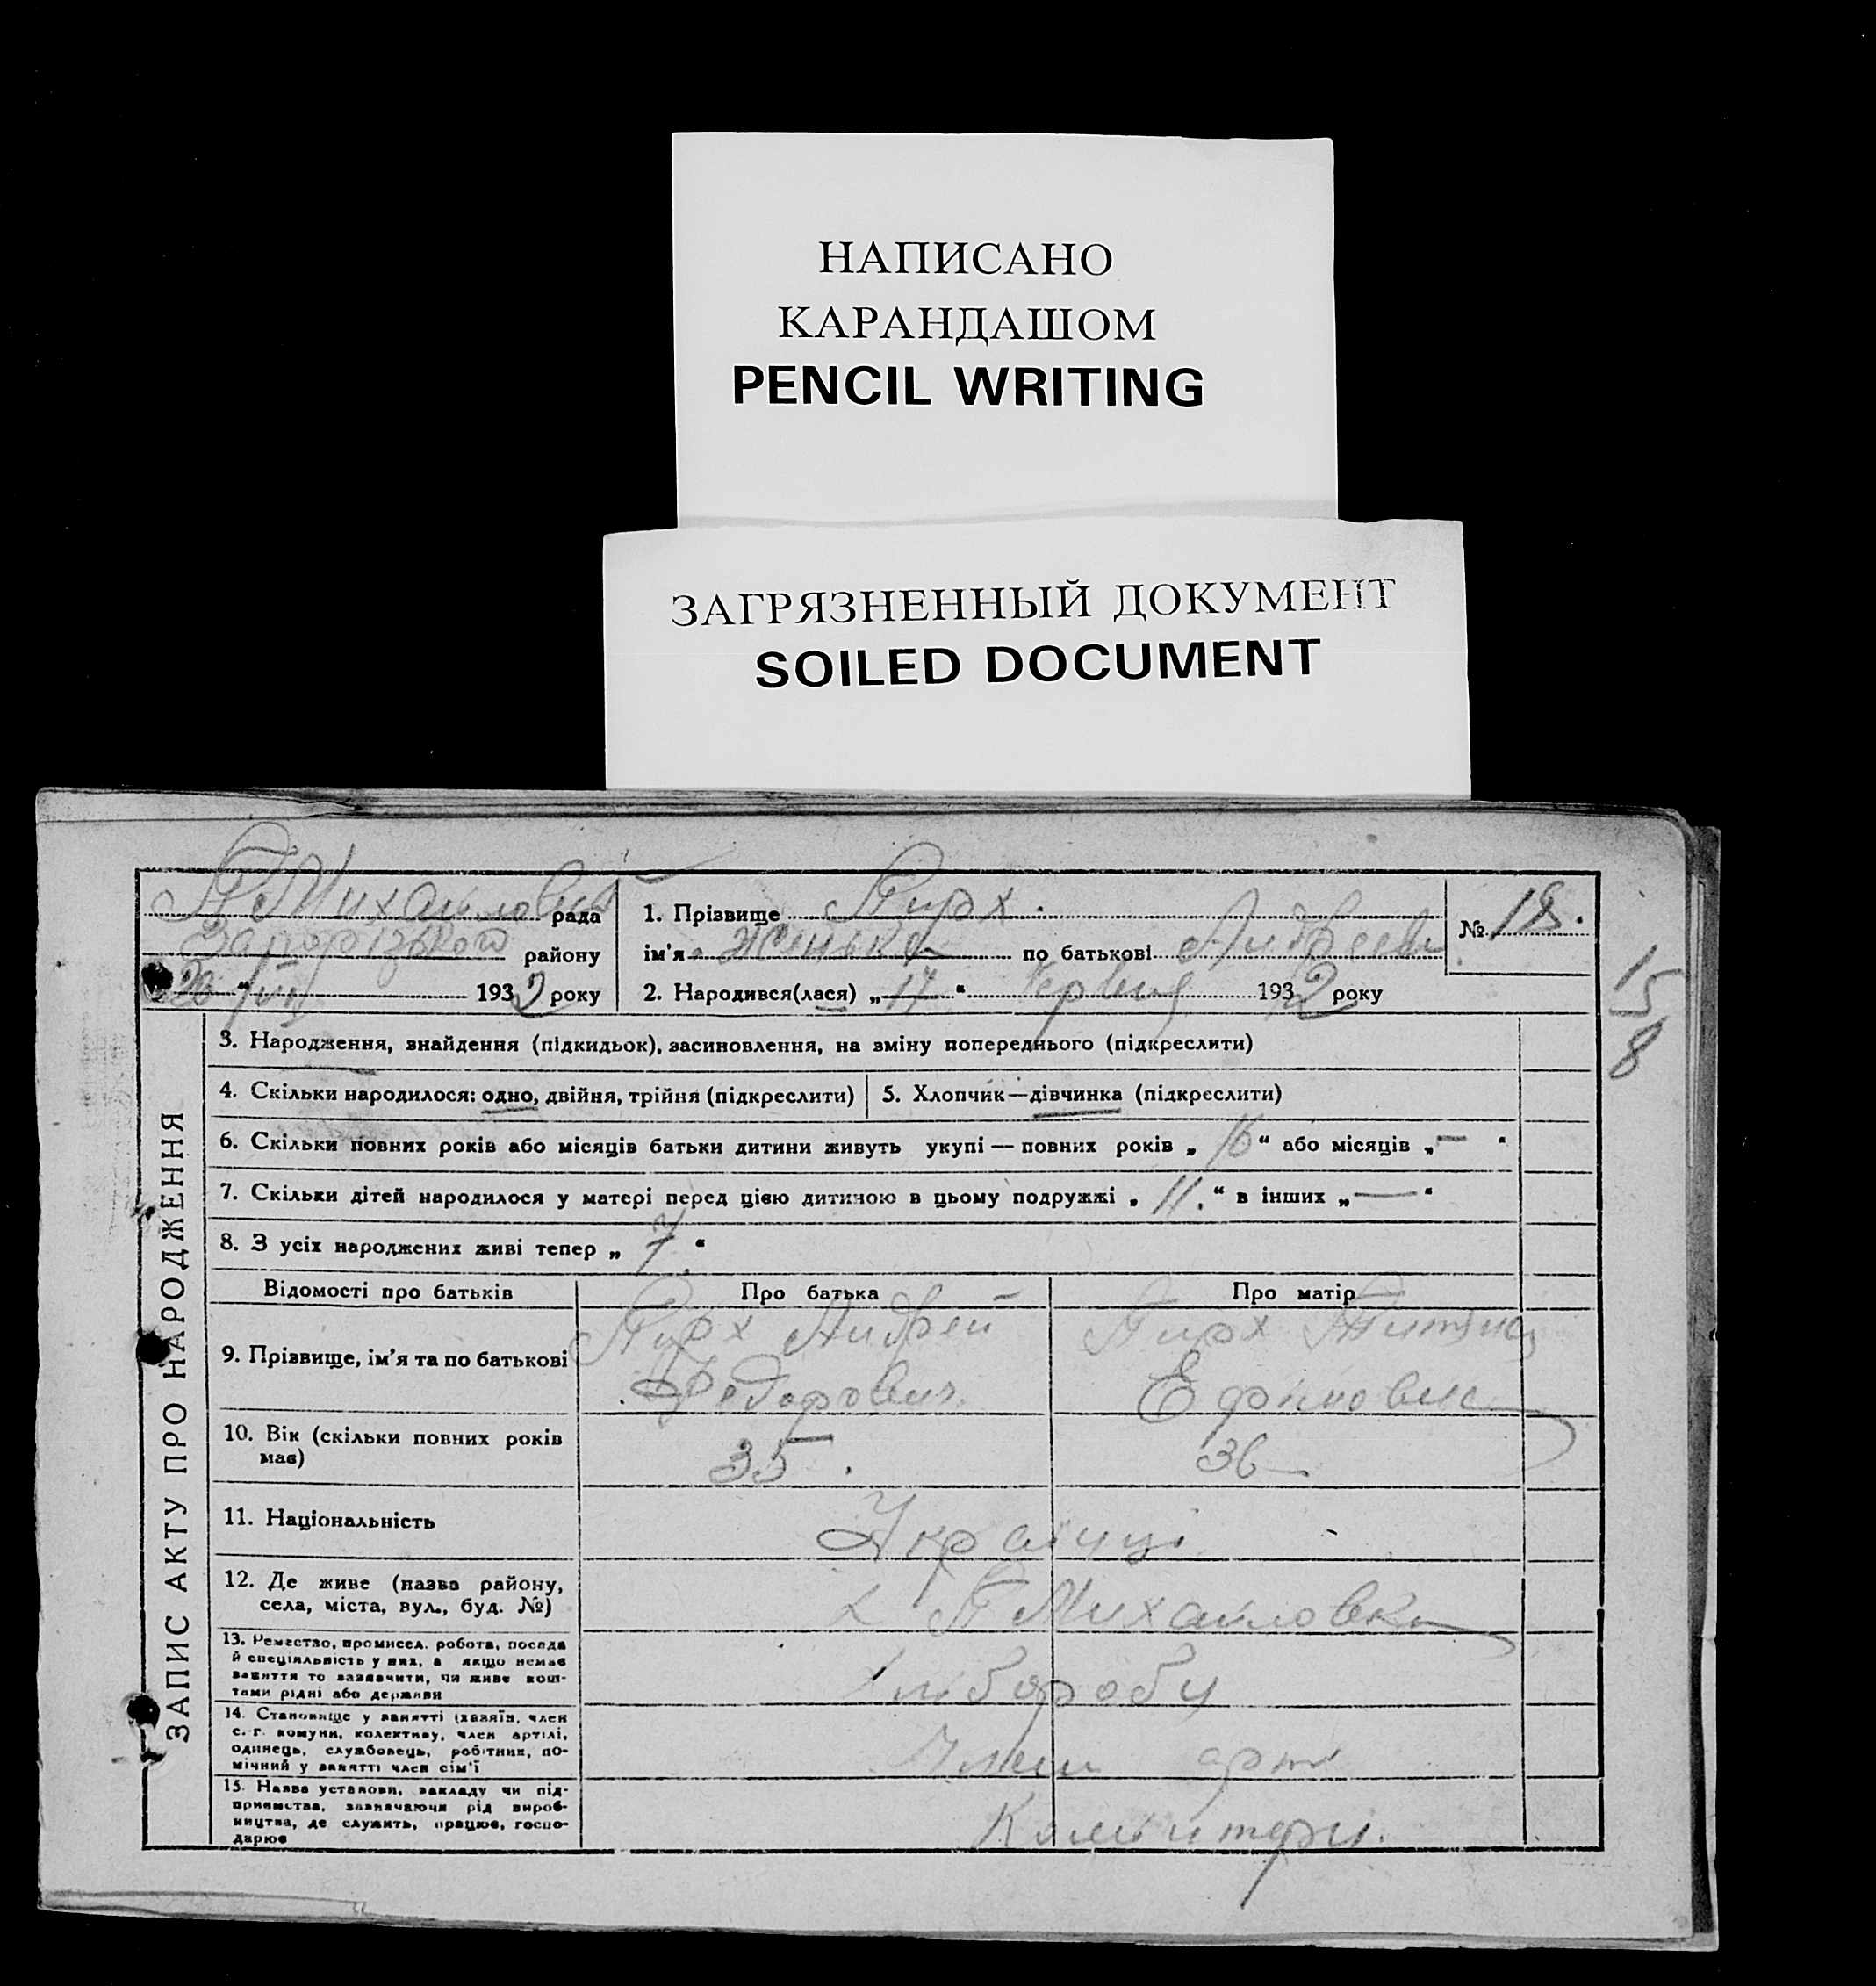 НАПИСАНО
КАРАНДАШОМ
PENCIL WRITING
ЗАГРЯЗНЕННЫЙ ДОКУМЕНТ
SOILED DOCUMENT
рада
Запорізького району
20 VII 1932 року
1. Прізвище Пирх.
ім'я Женька по батькові Андреевн
№ 18.
2. Народився(лася) „17“ Червня 1932 року
15
8
ЗАПИС АКТУ ПРО НАРОДЖЕННЯ
3. Народження, знайдення (підкидьок), засиновлення, на зміну попереднього (підкреслити)
4. Скільки народилося: одно, двійня, трійня (підкреслити) 5. Хлопчик—дівчинка (підкреслити)
6. Скільки повних років або місяців батьки дитини живуть укупі — повних років „16“ або місяців „—“
7. Скільки дітей народилося у матері перед цією дитиною в цьому подружжі „11.“ в інших „—“
8. З усіх народжених живі тепер „7.“
Відомості про батьків Про батька Про матір
9. Прізвище, ім'я та по батькові
Пирх Андрей
Федорович
Пирх
Ефимовна
10. Вік (скільки повних років
має)
35. 36
11. Національність
Українці
12. Де живе (назва району,
села, міста, вул., буд. №)
П Михайловка
13. Ремество, промисел, робота, посада
й спеціяльність у них, а якщо немає
заняття то зазначити, чи живе кош-
тами рідні або держави
14. Становище у занятті (хазяїн, член
с.-г. комуни, колективу, член артілі,
одинець, службовець, робітник, по-
мічний у занятті член сім'ї
Член арт
15. Назва установи, закладу чи під-
приємства, зазначаючи рід вироб-
ництва, де служить, працює, госпо-
дарює